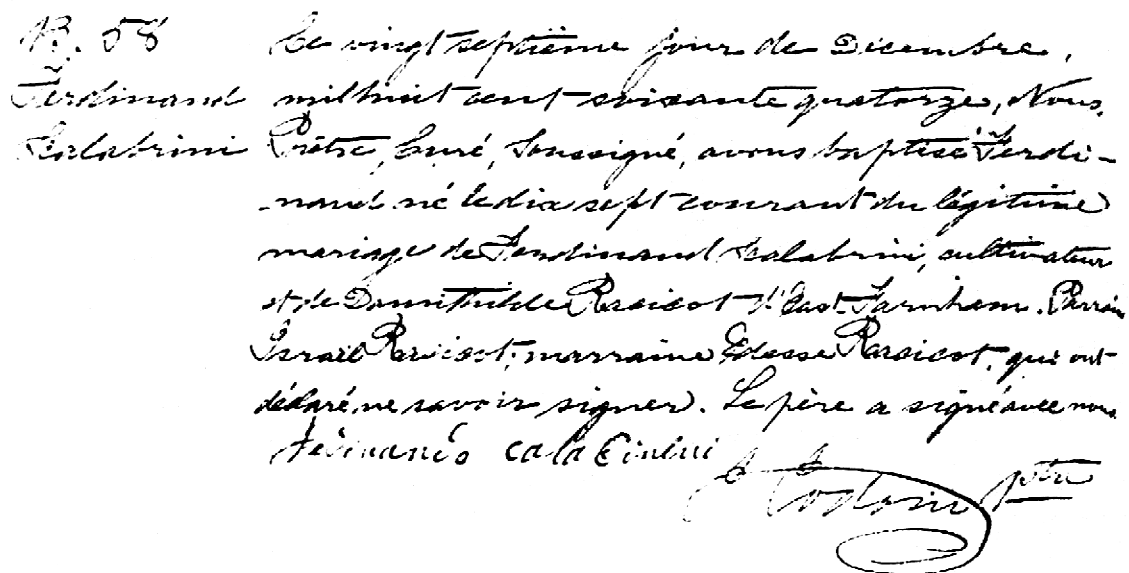 B. 58
Ferdinand
Scalabrini
Le vingt septième jour de Décembre,
mil huit cent soixante quatorze, Nous,
Prêtre, Curé, Soussigné, avons baptisé Ferdi-
nand né le dix sept courant du légitime
mariage de Ferdinand Scalabrini, cultivateur
et de Domithilde Racicot d'East Farnham. Parrain
Israël Racicot, marraine Edesse Racicot, qui ont
déclaré ne savoir signer. Le père a signé avec nous.
ptre